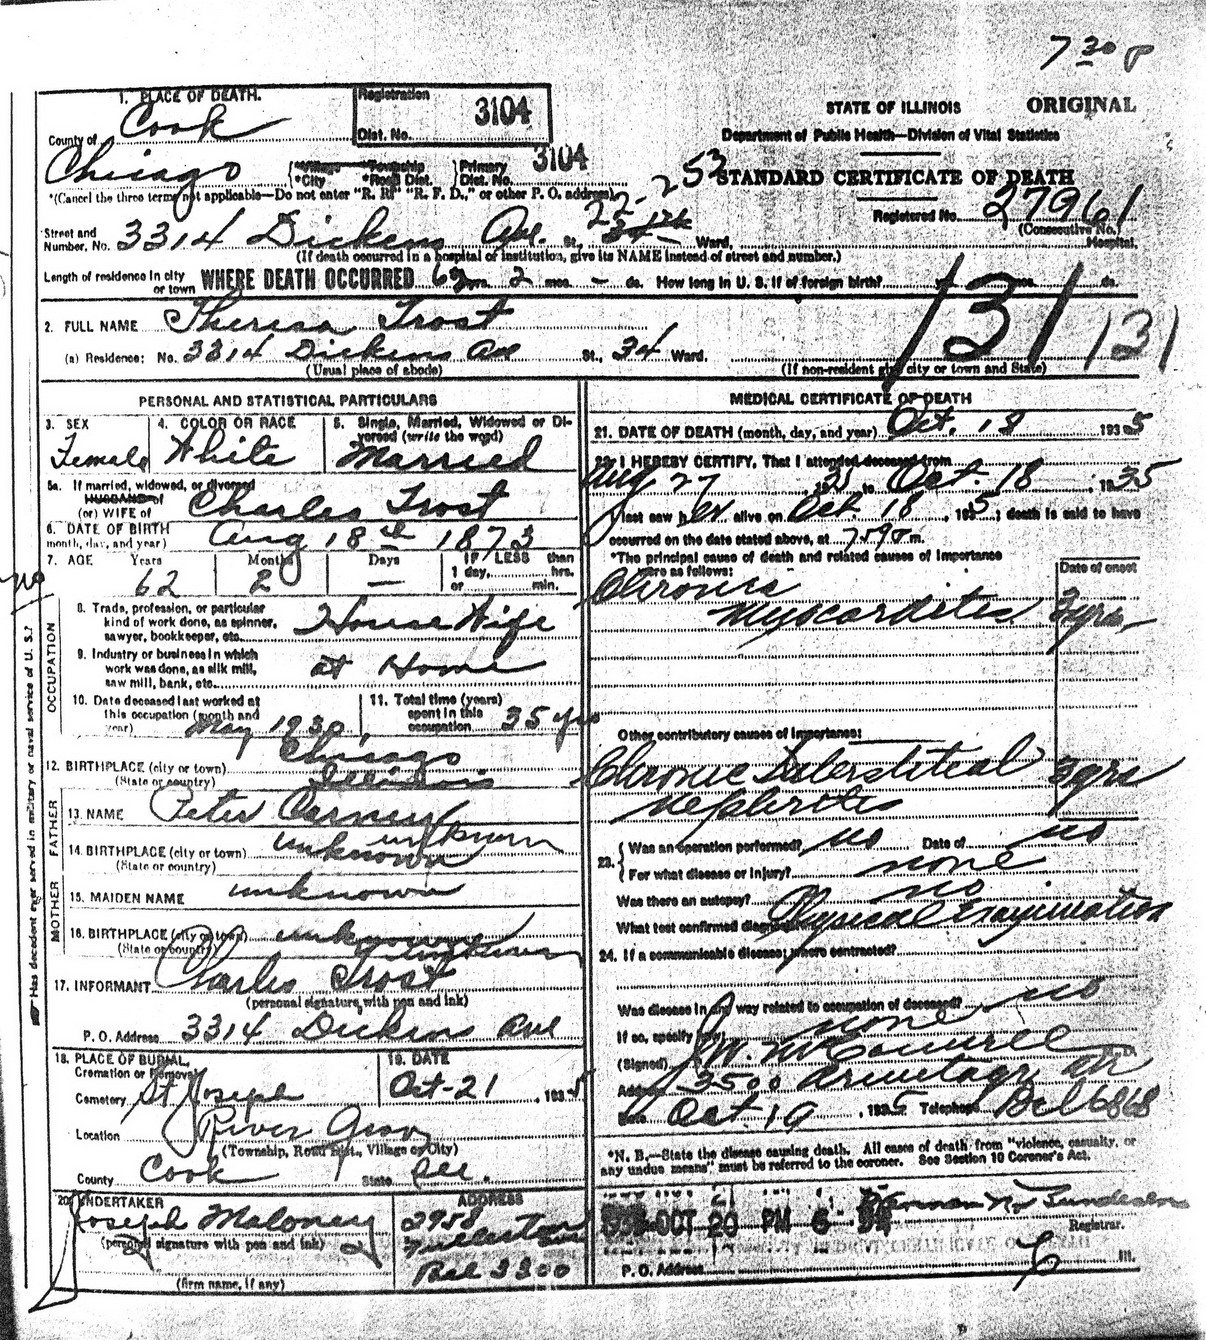 7 30 P
1. PLACE OF DEATH.
County of Cook
Registration
Dist. No. 3104
STATE OF ILLINOIS ORIGINAL
Department of Public Health—Division of Vital Statistics
Chicago
*Village *Township
*City *Road Dist.
Primary
Dist. No. 3104
253
STANDARD CERTIFICATE OF DEATH
*(Cancel the three terms not applicable—Do not enter "R. R." "R. F. D.," or other P. O. address)
Registered No. 27961
(Consecutive No.)
Street and
Number, No. 3314 Dickens Ave. St., Ward, Hospital,
(If death occurred in a hospital or institution, give its NAME instead of street and number.)
Length of residence in city
or town WHERE DEATH OCCURRED 62 yrs. 2 mos. — ds. How long in U. S. if of foreign birth? mos. ds.
131 131
2. FULL NAME Theresa Trost
(a) Residence: No. 3314 Dickens Ave St., 34 Ward.
(Usual place of abode) (If non-resident give city or town and State)
PERSONAL AND STATISTICAL PARTICULARS
3. SEX
Female
4. COLOR OR RACE
White
5. Single, Married, Widowed or Di-
vorced (write the word)
Married
5a. If married, widowed, or divorced
HUSBAND of
(or) WIFE of Charles Trost
6. DATE OF BIRTH
month, day, and year) Aug 18th 1873
7. AGE Years Months Days IF LESS than
1 day, hrs.
or min.
62 2 —
8. Trade, profession, or particular
kind of work done, as spinner,
sawyer, bookkeeper, etc. House Wife
9. Industry or business in which
work was done, as silk mill,
saw mill, bank, etc. at Home
10. Date deceased last worked at
this occupation (month and
year) May 1930
11. Total time (years)
spent in this
occupation 35 yrs
OCCUPATION
12. BIRTHPLACE (city or town) Chicago
(State or country) Illinois
FATHER
13. NAME Peter Carney
14. BIRTHPLACE (city or town) unknown
(State or country) unknown
MOTHER
15. MAIDEN NAME unknown
16. BIRTHPLACE (city or town) unknown
(State or country) unknown
17. INFORMANT Charles Trost
(personal signature with pen and ink)
P. O. Address 3314 Dickens Ave
18. PLACE OF BURIAL,
Cremation or Removal
Cemetery St Joseph
19. DATE
Oct-21, 1935
Location River Grov
(Township, Road Dist., Village or City)
County Cook State Ill.
20. UNDERTAKER
Joseph Maloney
(personal signature with pen and ink)
(firm name, if any)
ADDRESS
2958
Fullerton
Bel 3300
☛ Has decedent ever served in military or naval service of U. S.? no
MEDICAL CERTIFICATE OF DEATH
21. DATE OF DEATH (month, day, and year) Oct. 18 1935
22. I HEREBY CERTIFY, That I attended deceased from
Aug 27, 35 to Oct. 18, 1935
I last saw her alive on Oct 18, 1935; death is said to have
occurred on the date stated above, at m.
*The principal cause of death and related causes of importance
were as follows: Date of onset
Chronic
Myocardites 3 yrs
Other contributory causes of importance:
Chronic Interstitial 3 yrs
Nephrites
23. Was an operation performed? no Date of no
For what disease or injury? none
Was there an autopsy? no
What test confirmed diagnosis? Physical Examination
24. If a communicable disease; where contracted?
Was disease in any way related to occupation of deceased? no
If so, specify how none
(Signed) M.D.
Address 3500 Armitage Av
Date Oct 19, 1935 Telephone Bel 6868
*N. B.—State the disease causing death. All cases of death from "violence, casualty, or
any undue means" must be referred to the coroner. See Section 10 Coroner's Act.
OCT 20 PM 6
Herman N. Bundesen
Registrar.
P. O. Address Ill.